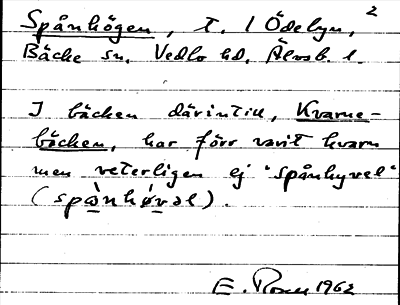 Spånhögen, t. l Ödelyn, 2
Bäcke sn. Vedbo hd. Älvsb. l.
I bäcken därintill, Kvarne-
bäcken, har förr varit kvarn
men veterligen ej "spånhyvel"
(spånhøvəl).
E. 1962